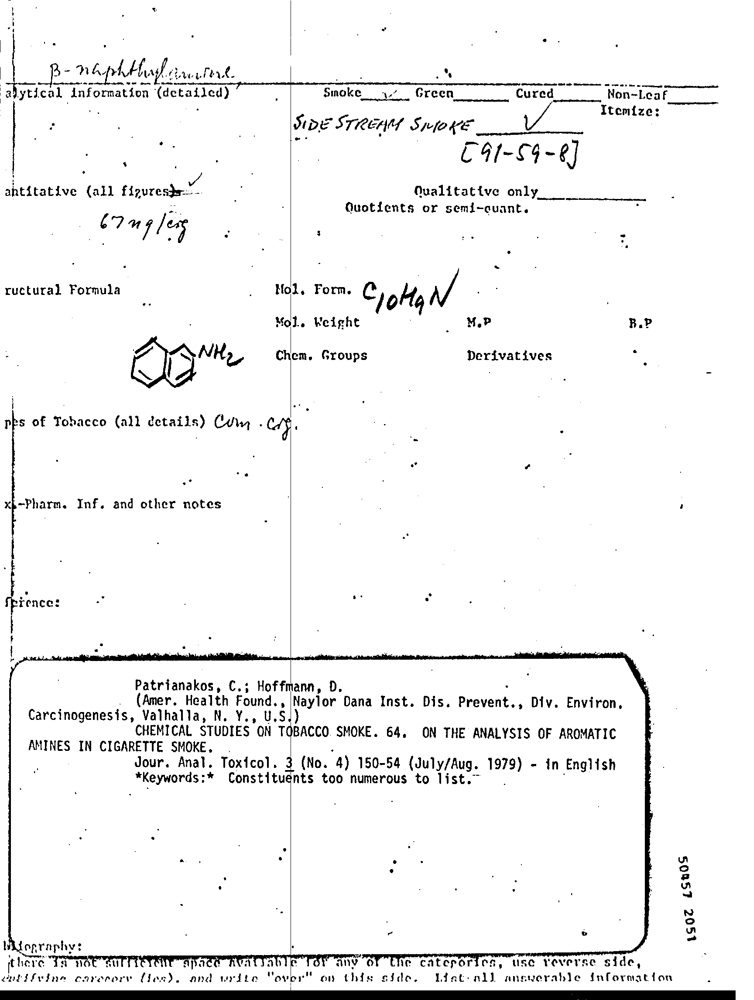 β-naphthylamine
alytical information (detailed) Smoke ✓ Green Cured Non-Leaf
Itemize:
SIDE STREAM SMOKE ✓
[91-59-8]
antitative (all figures) ✓ Qualitative only
Quotients or semi-quant.
67 ng/cig
ructural Formula Mol. Form. C10H9N
Mol. Weight M.P B.P
NH2 Chem. Groups Derivatives
pes of Tobacco (all details) Com. Cig.
x.-Pharm. Inf. and other notes
ference:
Patrianakos, C.; Hoffmann, D.
(Amer. Health Found., Naylor Dana Inst. Dis. Prevent., Div. Environ.
Carcinogenesis, Valhalla, N. Y., U.S.)
CHEMICAL STUDIES ON TOBACCO SMOKE. 64. ON THE ANALYSIS OF AROMATIC
AMINES IN CIGARETTE SMOKE.
Jour. Anal. Toxicol. 3 (No. 4) 150-54 (July/Aug. 1979) - in English
*Keywords:* Constituents too numerous to list.
50457 2051
bliography:
there is not sufficient space available for any of the categories, use reverse side,
entifying category (ies), and write "over" on this side. List all answerable information